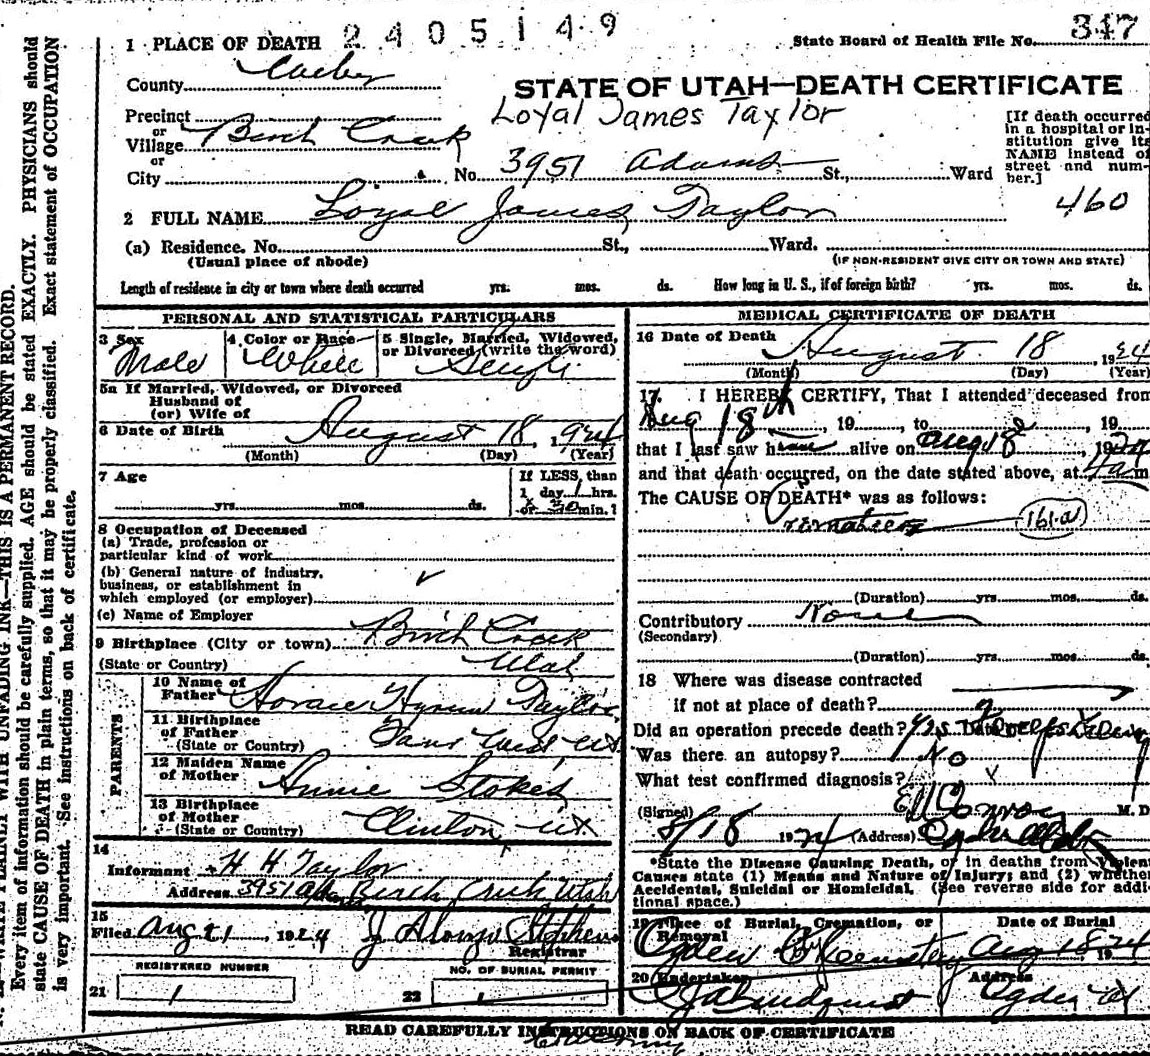 2405149
347
1 PLACE OF DEATH
State Board of Health File No.
County Weber
STATE OF UTAH—DEATH CERTIFICATE
Precinct
Loyal James Taylor
or
Village Birch Creek
or
City No. 3951 Adams St., Ward
[If death occurred in a hospital or institution give its NAME instead of street and number.]
460
2 FULL NAME Loyal James Taylor
(a) Residence. No. St., Ward.
(Usual place of abode) (IF NON-RESIDENT GIVE CITY OR TOWN AND STATE)
Length of residence in city or town where death occurred yrs. mos. ds. How long in U. S., if of foreign birth? yrs. mos. ds.
PERSONAL AND STATISTICAL PARTICULARS
3 Sex Male
4 Color or Race White
5 Single, Married, Widowed, or Divorced (write the word) Single
5a If Married, Widowed, or Divorced
Husband of
(or) Wife of
6 Date of Birth August 18, 1924
(Month) (Day) (Year)
7 Age
yrs. mos. ds.
If LESS than
1 day 1 hrs.
or 30 min.?
8 Occupation of Deceased
(a) Trade, profession or
particular kind of work
(b) General nature of industry,
business, or establishment in
which employed (or employer)
(c) Name of Employer
9 Birthplace (City or town) Birch Creek
(State or Country) Utah
PARENTS
10 Name of
Father Horace Hyrum Taylor
11 Birthplace
of Father
(State or Country) Farr West Ut
12 Maiden Name
of Mother Annie Stokes
13 Birthplace
of Mother
(State or Country) Clinton, Ut
14
Informant H H Taylor
Address 3951 Birch Creek Utah
15
Filed Aug 21, 1924 J Alonzo Stephens
Registrar
REGISTERED NUMBER NO. OF BURIAL PERMIT
21 1 22 1
MEDICAL CERTIFICATE OF DEATH
16 Date of Death August 18, 1924
(Month) (Day) (Year)
17. I HEREBY CERTIFY, That I attended deceased from
Aug 18th, 19 , to , 19
that I last saw h alive on Aug 18, 1924
and that death occurred, on the date stated above, at 4 a m
The CAUSE OF DEATH* was as follows:
161-a
(Duration) yrs. mos. ds.
Contributory None
(Secondary)
(Duration) yrs. mos. ds.
18 Where was disease contracted
if not at place of death?
Did an operation precede death? Date of
Was there an autopsy? No
What test confirmed diagnosis?
(Signed) M. D.
8/18 1924 (Address) Ogden Utah
*State the Disease Causing Death, or in deaths from Violent
Causes state (1) Means and Nature of Injury; and (2) whether
Accidental, Suicidal or Homicidal. (See reverse side for addi-
tional space.)
19 Place of Burial, Cremation, or Removal Date of Burial
Ogden City Cemetery Aug 18 1924
20 Undertaker Address
Ogden Ut
READ CAREFULLY INSTRUCTIONS ON BACK OF CERTIFICATE
WRITE PLAINLY WITH UNFADING INK—THIS IS A PERMANENT RECORD.
Every item of information should be carefully supplied. AGE should be stated EXACTLY. PHYSICIANS should
state CAUSE OF DEATH in plain terms, so that it may be properly classified. Exact statement of OCCUPATION
is very important. See instructions on back of certificate.